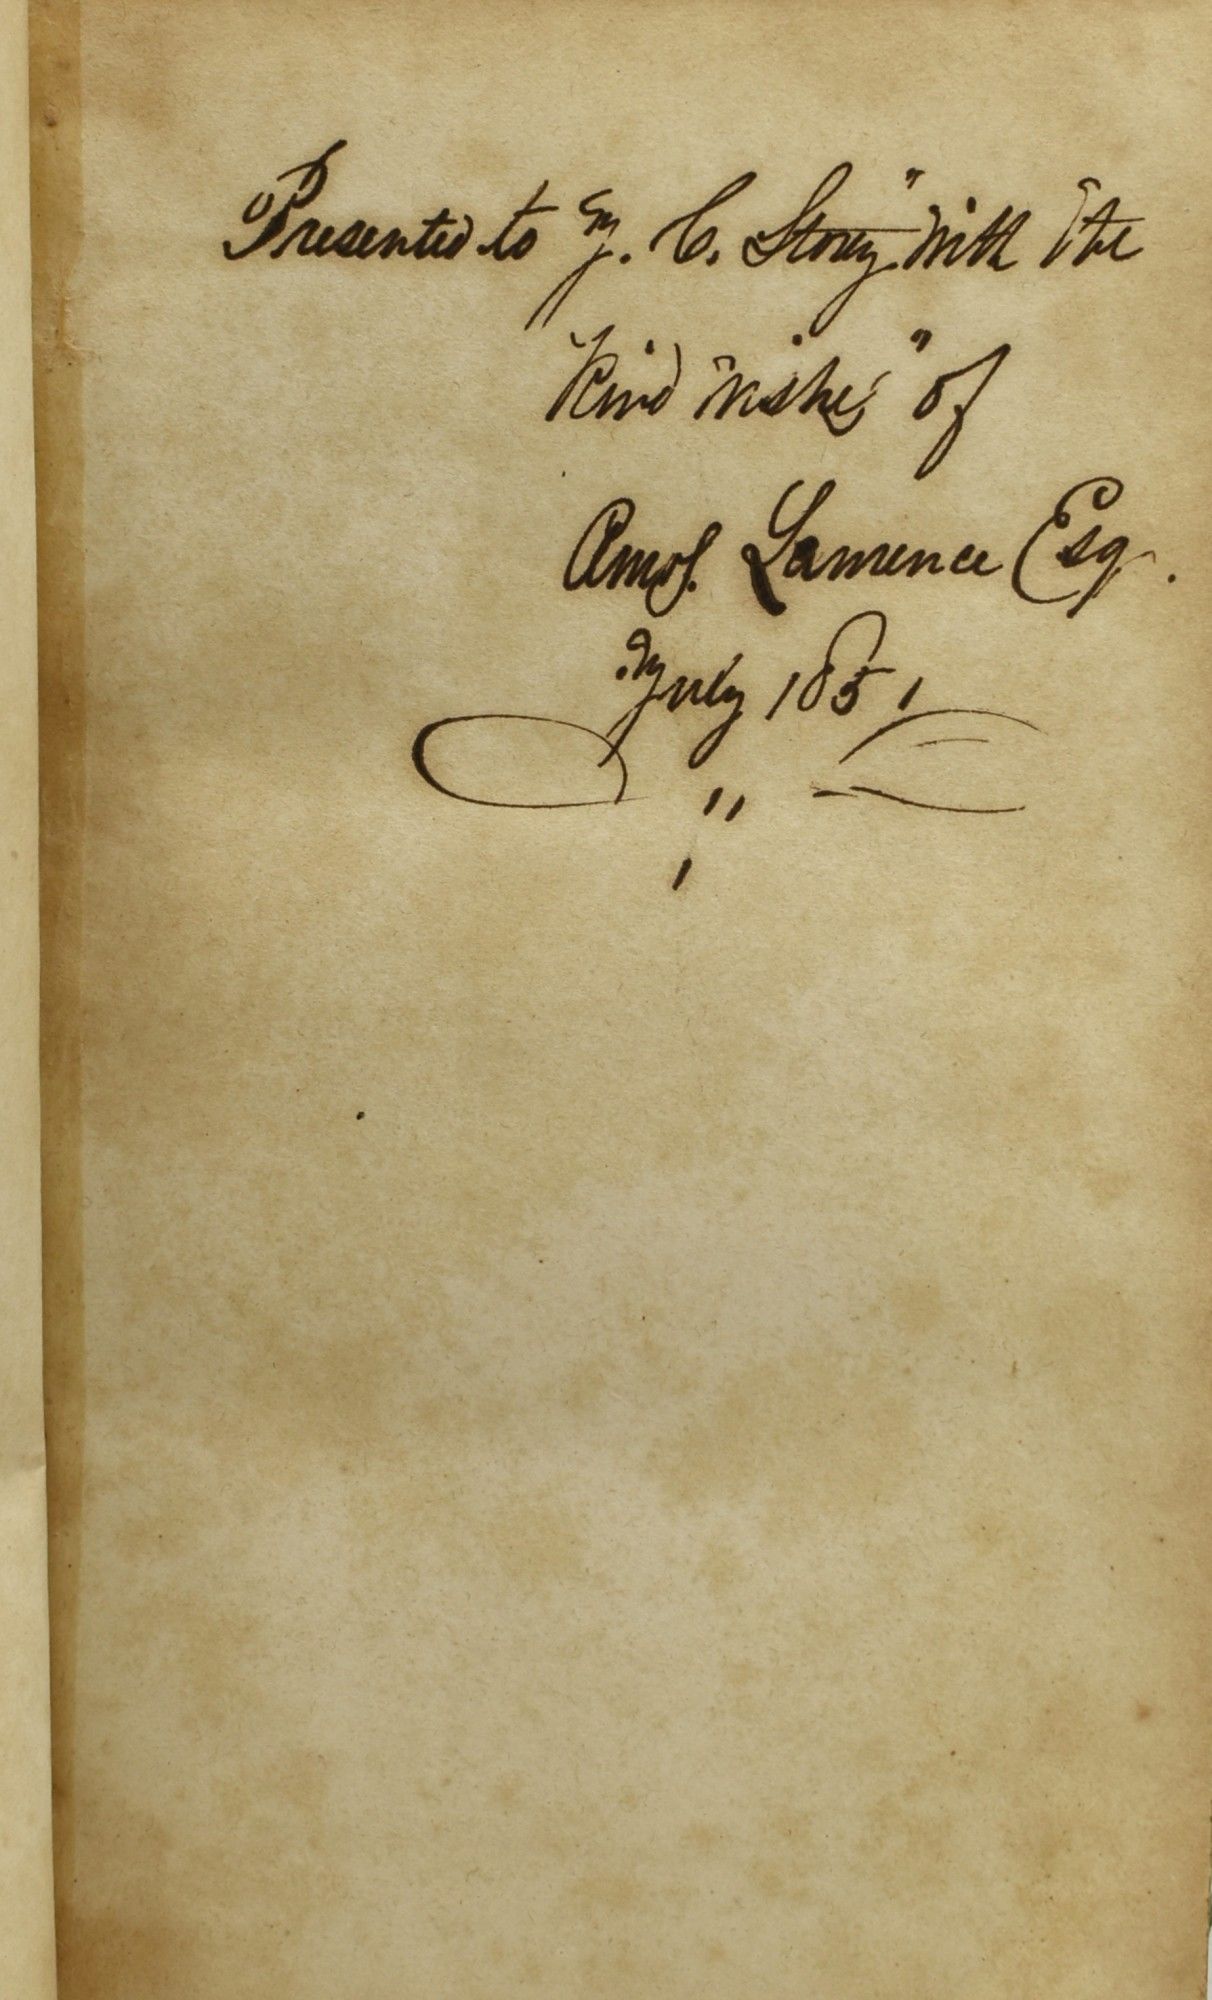 Presented to J. C. Story" With the
Kind wishes" of
Amos. Lawrence Esq.
July 1851